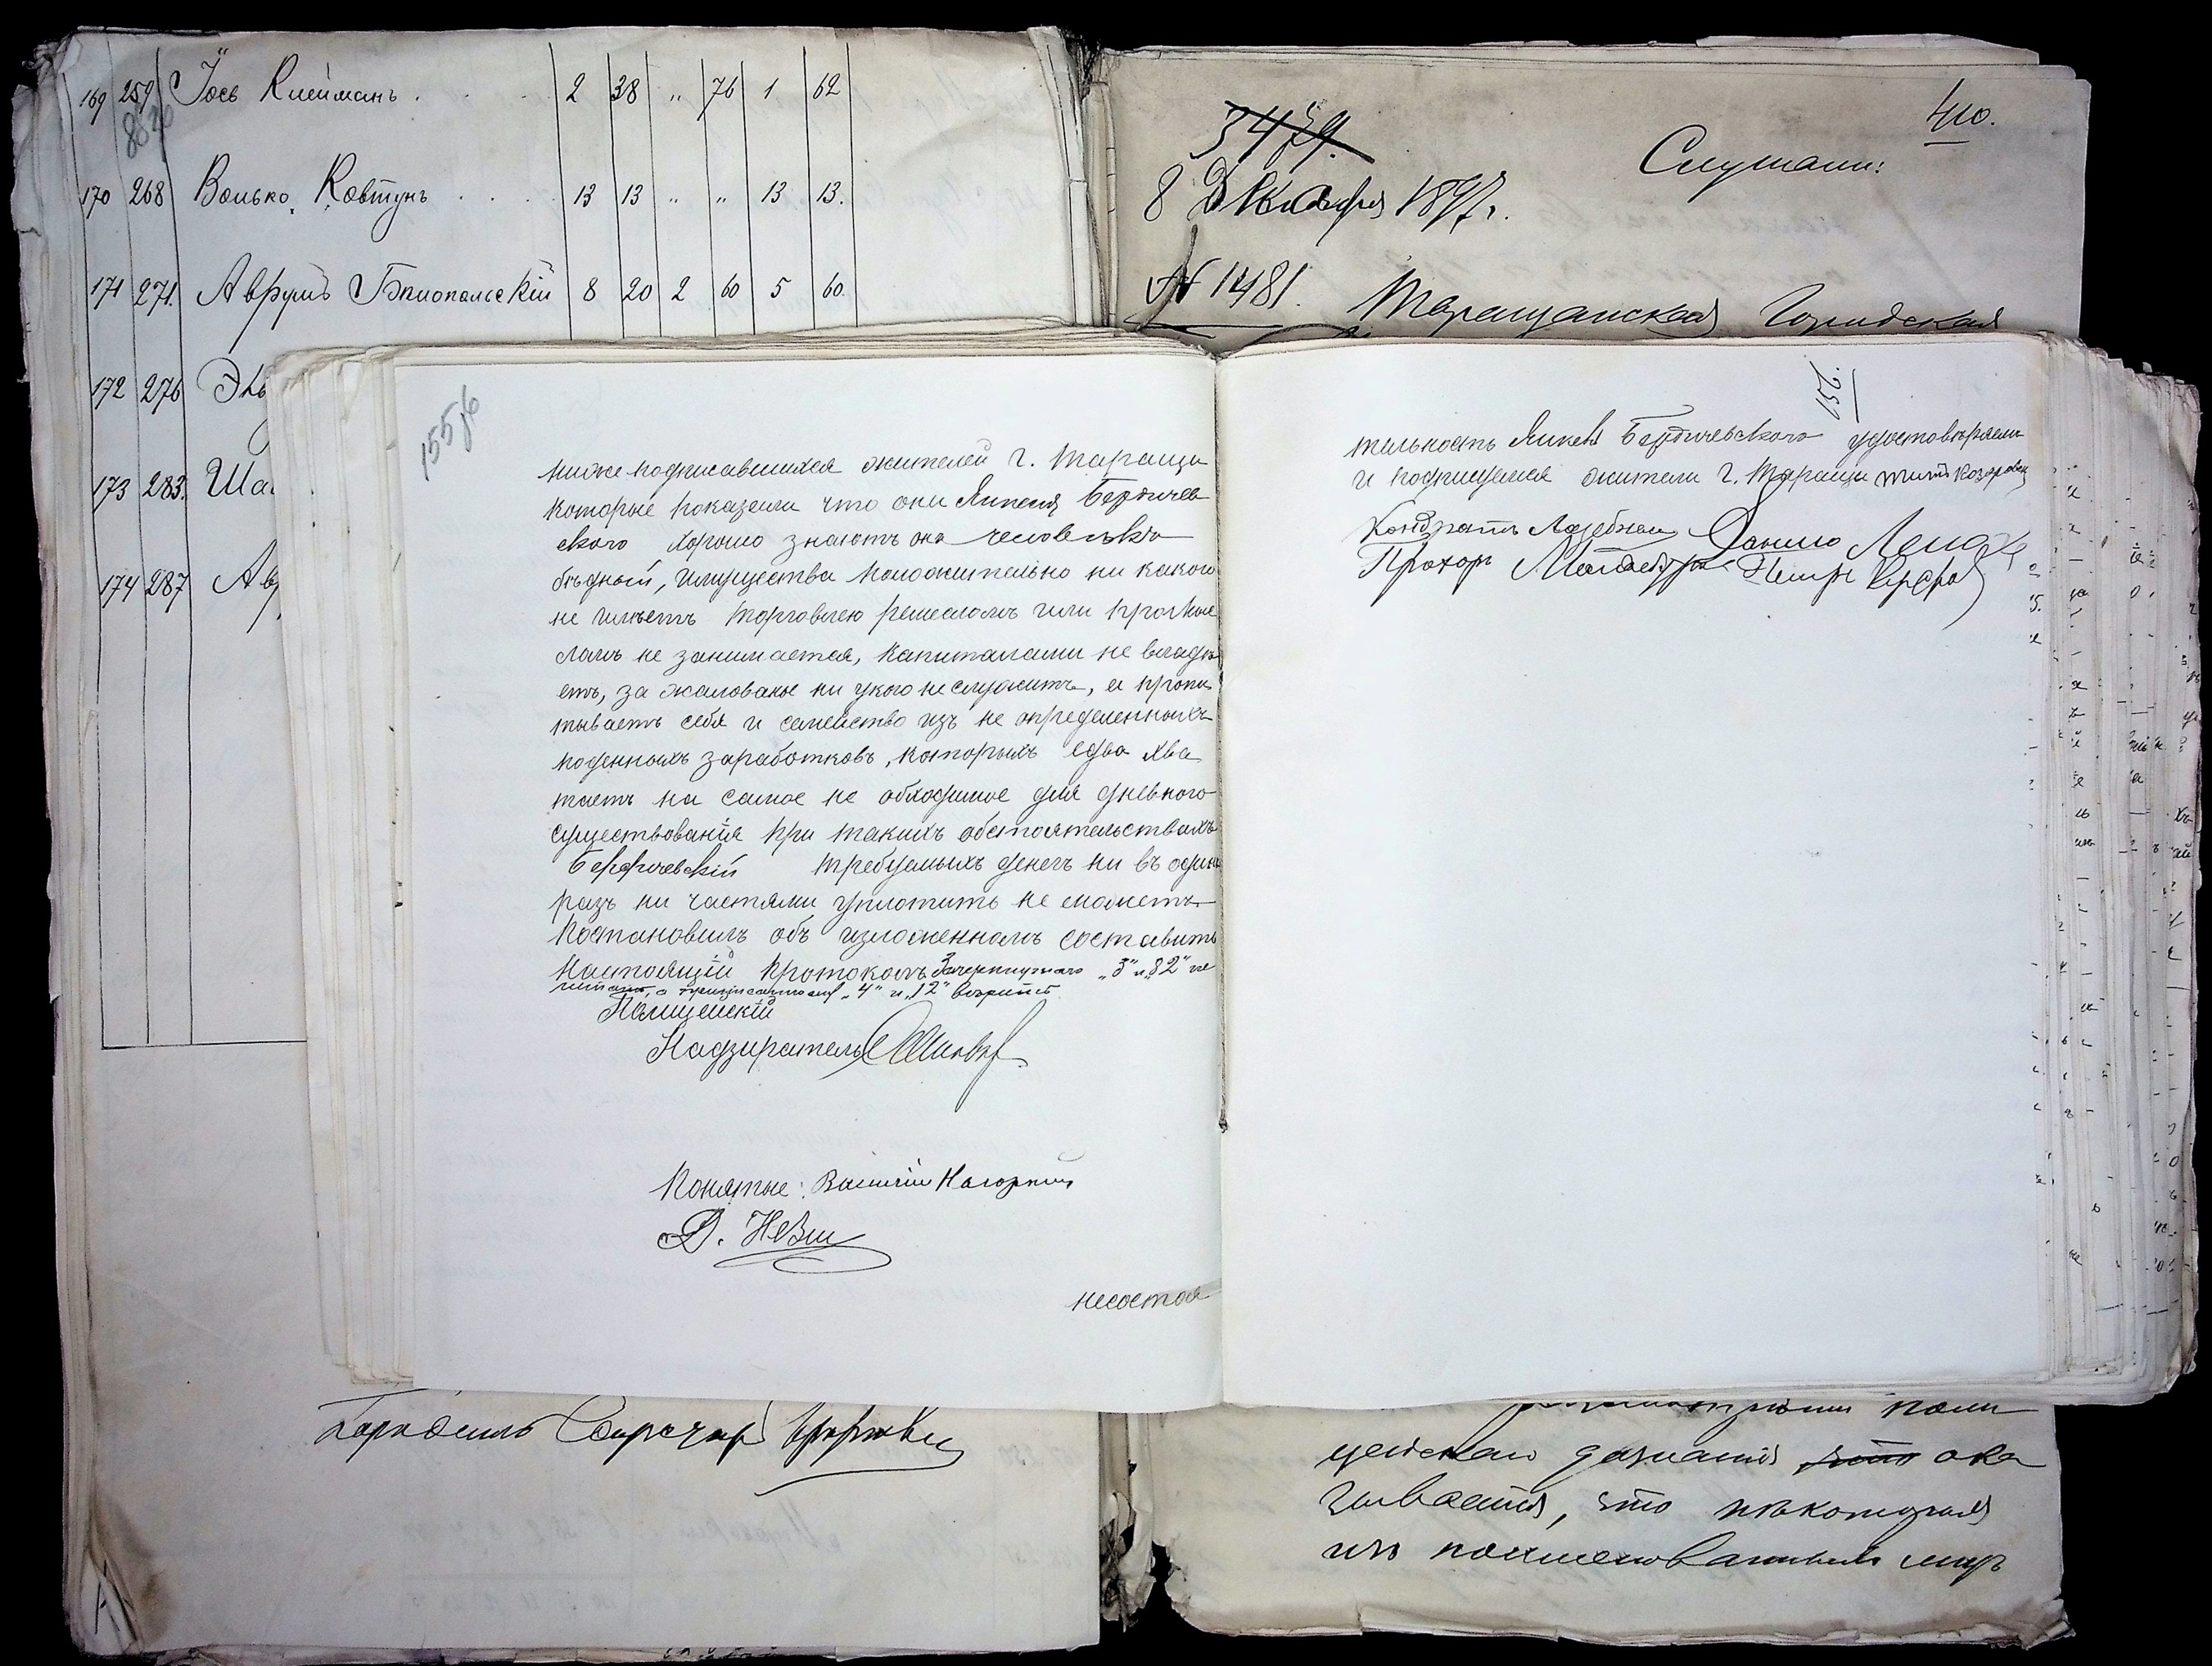 169 259 Іось Клейманъ . . . 2 38 „ 76 1 62
170 268 Волько Ковтунъ . . . 13 13 „ „ 13 13.
171 271. Аврумъ Бялопольскій 8 20 2 60 5 60.
172 276
173 283.
174 287
410.
Слушали:
8 Декабря 1897 г.
№ 1481.
Таращанская Городская
155об
ниже подписавшихся жителей г. Таращи
которые показали что они Янкеля Бердичев
ского хорошо знаютъ онъ человѣкъ
бѣдный, имущества положительно ни какого
не имѣетъ торговлею ремесломъ или промыс
ломъ не занимается, капиталами не владѣ
етъ, за жалованье ни укого не служитъ, а пропи
тываетъ себя и семейство изъ не определенныхъ
поденныхъ заработковъ, которыхъ едва хва
таетъ на самое не обходимое для дневного
существованія при такихъ обстоятельствахъ
Бердичевскій требуемыхъ денегъ ни въ одинъ
разъ ни частями уплотить не можетъ
Постановилъ объ изложенномъ составить
настоящій протоколъ Зачеркнутаго „3" и „82" не
читать, а „4" и „12" вѣрить
Полицейскій
Надзиратель
Понятые: Василій Нагорный
несостоя
156.
тельность Янкеля Бердичевского удостовѣряемъ
и подпишемся жители г. Таращи
Кондратъ Данило
Прохоръ
поли
цейскаго дознанія ока
зывается, что нѣкоторыя
изъ поименованныхъ лицъ